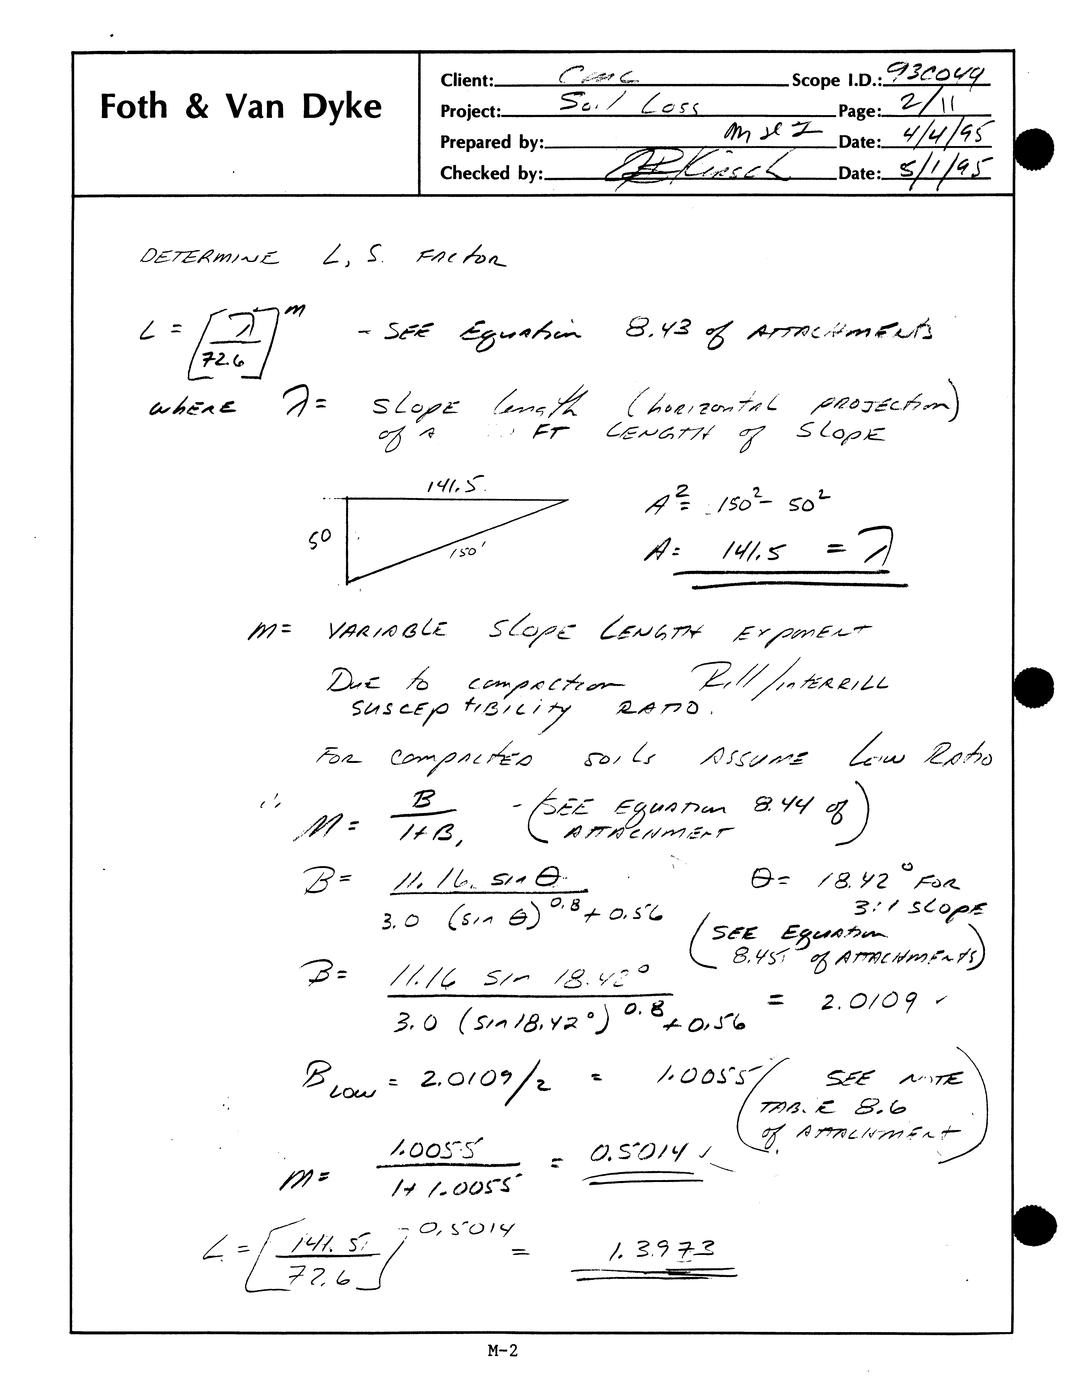 Foth & Van Dyke
Client: CMC Scope I.D.: 93C049
Project: Soil Loss Page: 2/11
Prepared by: Date: 4/4/95
Checked by: Kirsch Date: 5/1/95
DETERMINE L, S. FACTOR
L = [λ/72.6]^m - SEE Equation 8.43 of ATTACHMENTS
where λ = SLOPE length (horizontal PROJECTION)
of A FT LENGTH of SLOPE
141.5
50
150'
A² = 150² - 50²
A = 141.5 = λ
m = VARIABLE SLOPE LENGTH EXPONENT
Due to compaction Rill/interrill
SUSCEPtIBILity RATIO.
FOR COMPACTED SOILS ASSUME Low RATIO
∴ M = B/1+B, - (SEE Equation 8.44 of ATTACHMENT)
B = 11.16 sin θ / 3.0 (sin θ)^0.8 + 0.56
θ = 18.42° FOR
3:1 SLOPE
(SEE Equation
8.45 of ATTACHMENTS)
B = 11.16 sin 18.42° / 3.0 (sin 18.42°)^0.8 + 0.56 = 2.0109 ✓
B LOW = 2.0109/2 = 1.0055 (SEE NOTE
TABLE 8.6
of ATTACHMENT)
M = 1.0055 / 1 + 1.0055 = 0.5014 ✓
L = [141.5/72.6]^0.5014 = 1.3973
M-2